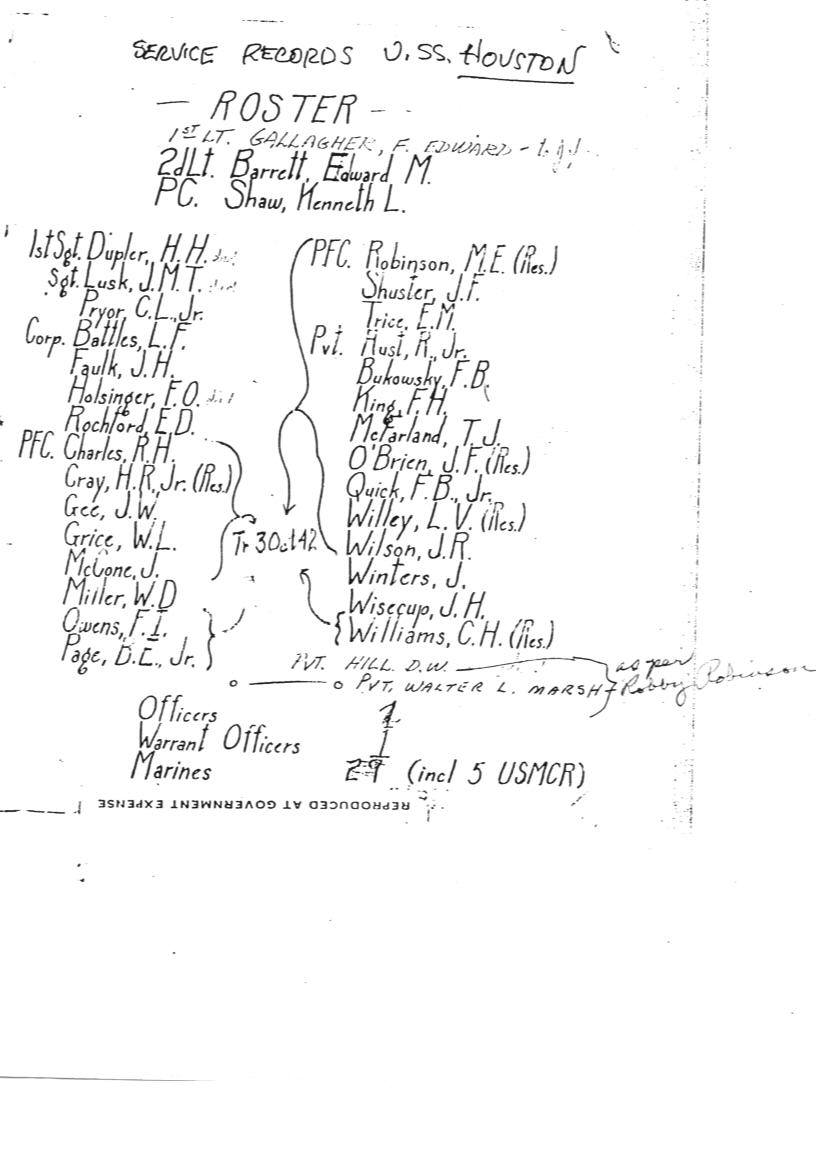 SERVICE RECORDS U.SS. HOUSTON
— ROSTER - -
1ST LT. GALLAGHER, F. EDWARD -
2dLt. Barrett, Edward M.
PC. Shaw, Kenneth L.
1stSgt. Dupler, H.H.
Sgt. Lusk, J.M.T.
Pryor, C.L., Jr.
Corp. Battles, L.F.
Faulk, J.H.
Holsinger, F.O.
Rochford, E.D.
PFC. Charles, R.H.
Gray, H.R., Jr. (Res.)
Gee, J.W.
Grice, W.L.
McCone, J.
Miller, W.D
Owens, F.I.
Page, D.C., Jr.
Tr 30ct42
PFC. Robinson, M.E. (Res.)
Shuster, J.F.
Trice, E.M.
Pvt. Hust, R., Jr.
Bukowsky, F.B.
King, F.H.
McFarland, T.J.
O'Brien, J.F. (Res.)
Quick, F.B., Jr.
Willey, L.V. (Res.)
Wilson, J.R.
Winters, J.
Wisecup, J.H.
Williams, C.H. (Res.)
PVT. HILL D.W.
PVT. WALTER L. MARSH
as per
Robby Robinson
Officers
Warrant Officers 1
Marines (incl 5 USMCR)
REPRODUCED AT GOVERNMENT EXPENSE